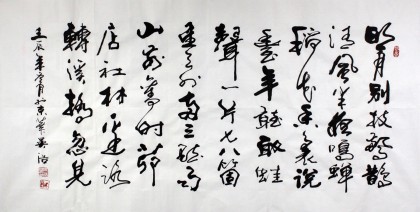 明月别枝驚鵲
清風半夜鳴蟬
稻花香裏說
豐年聽取蛙
聲一片七八箇
星天外兩三點雨
山前舊時茅
店社林邊路
轉溪橋忽見
壬辰年月於京華